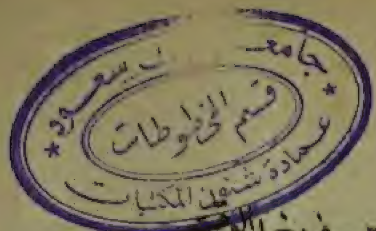 جامعـ ـك سعود
قسم المخطوطات
عمادة شئون المكتبات